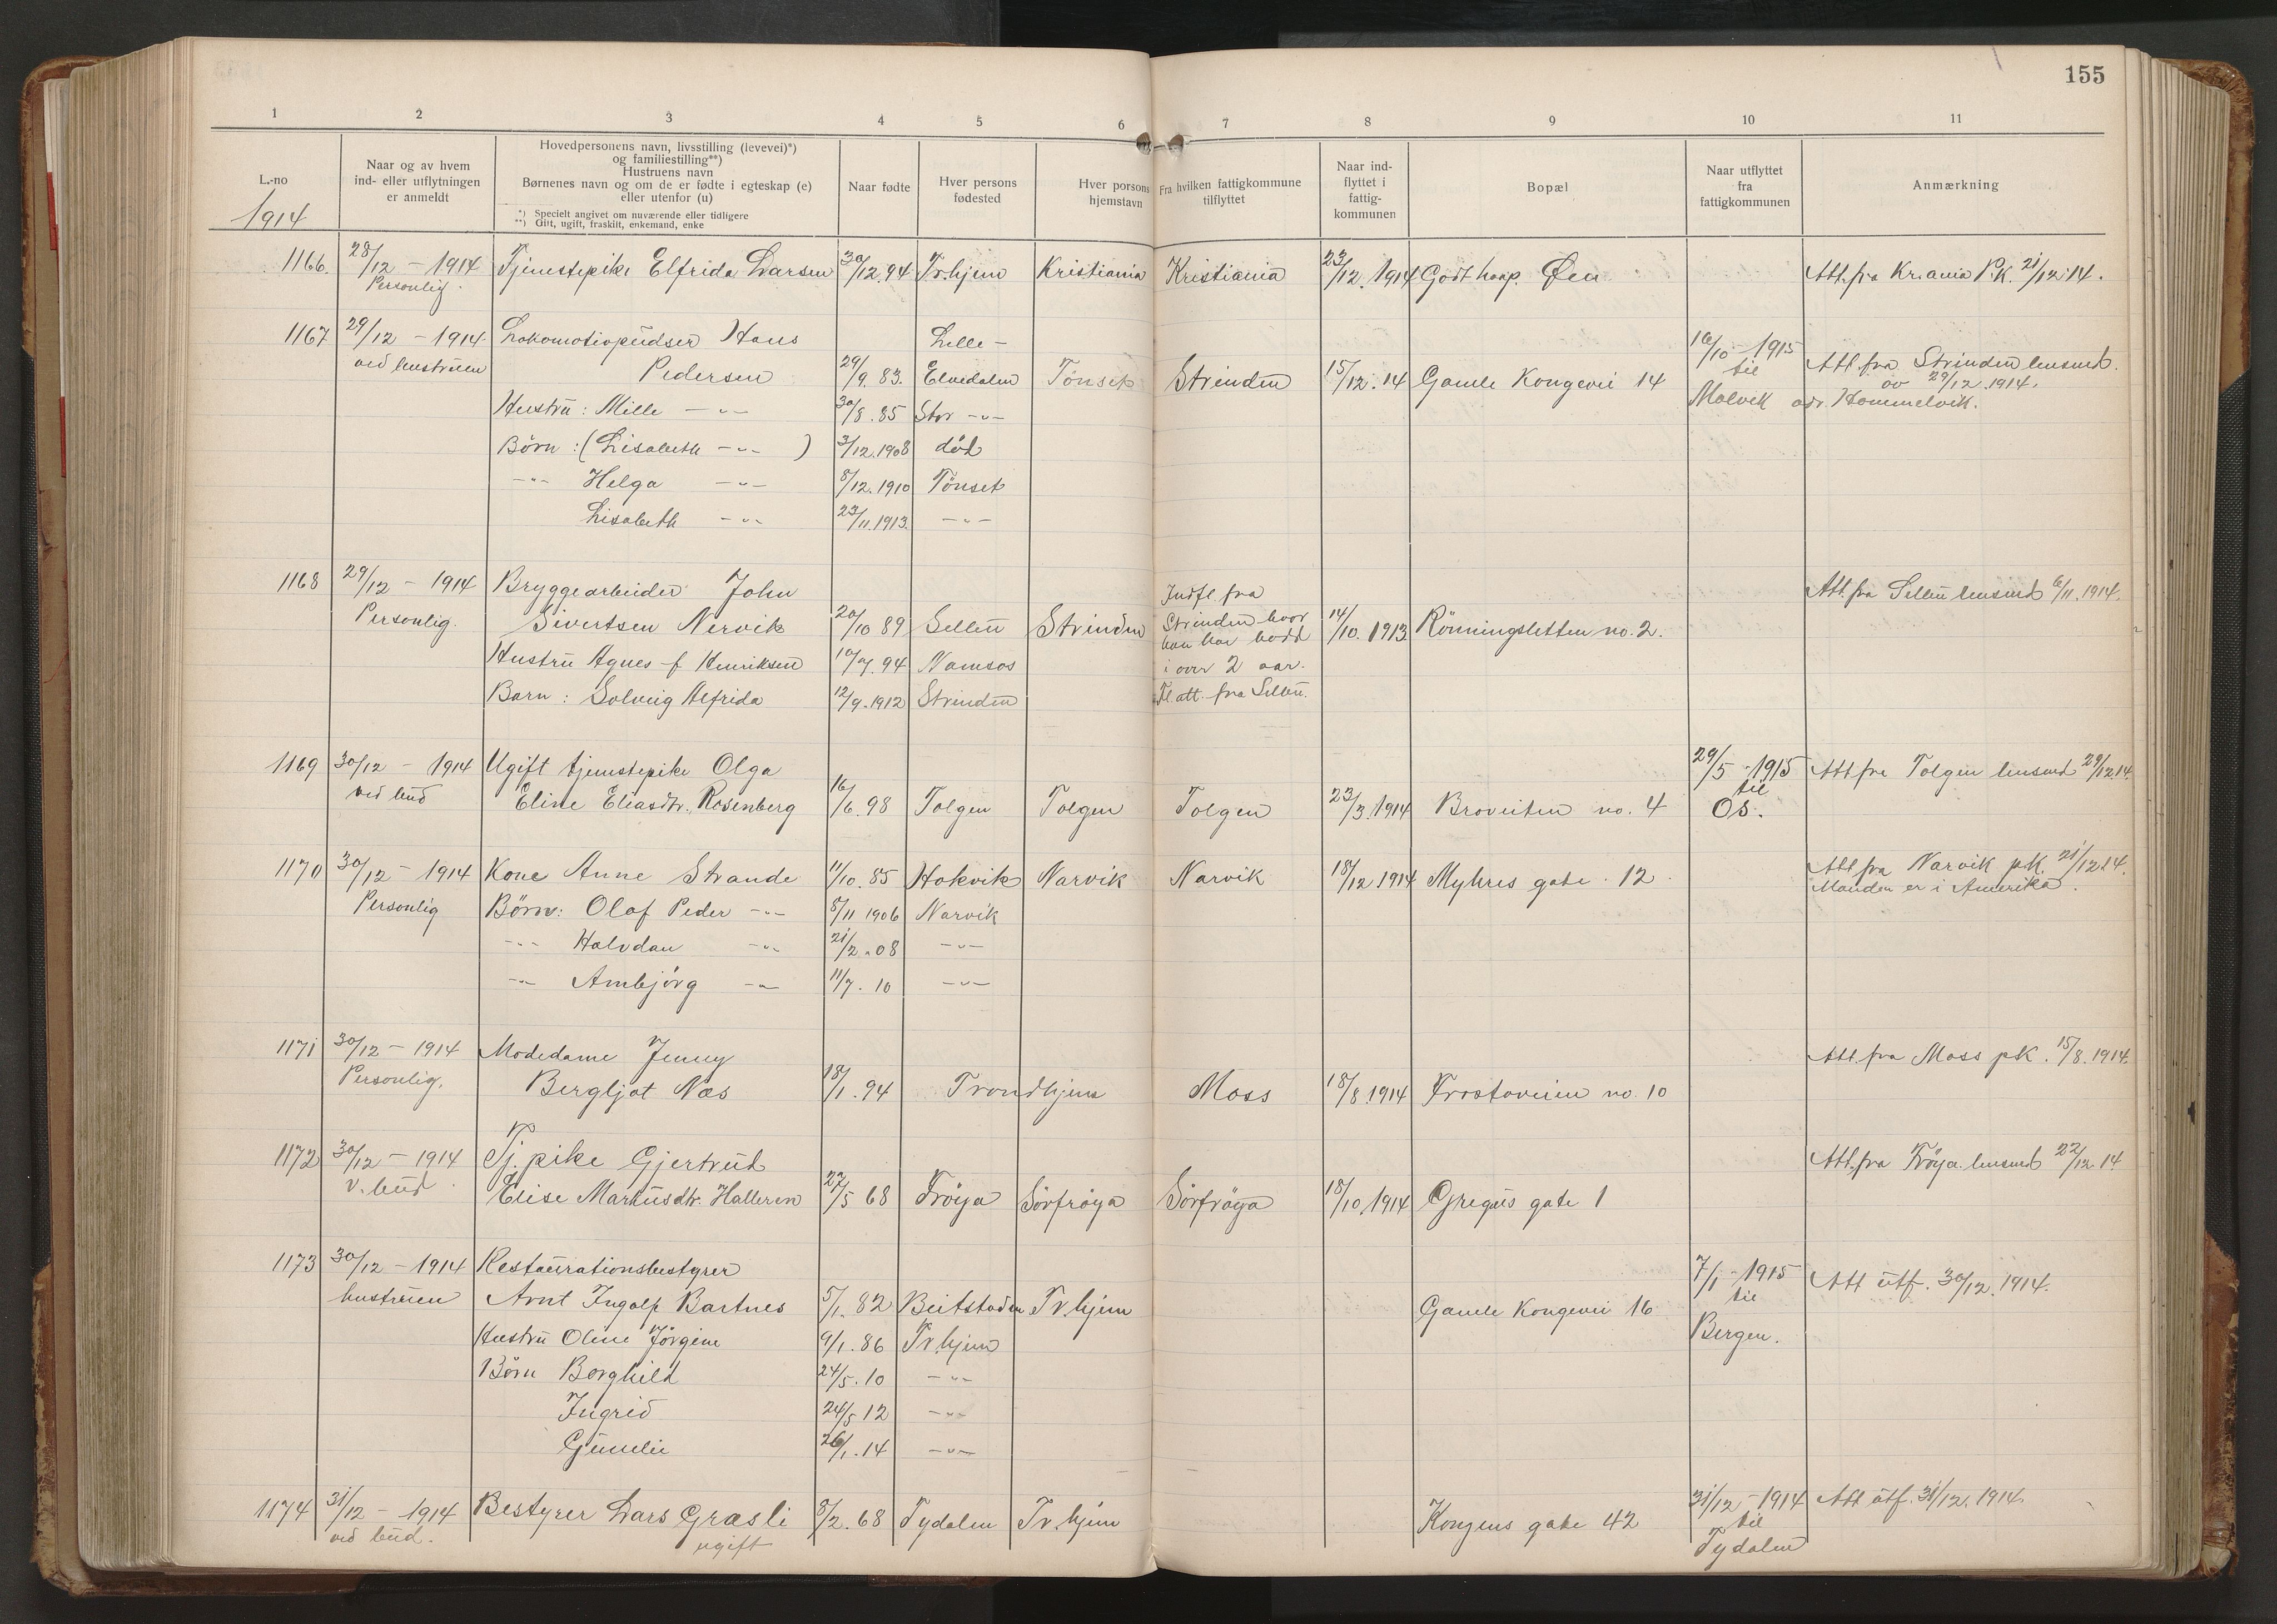 155
1 2 3 4 5 6 7 8 9 10 11
L.-no
1914
Naar og av hvem
ind- eller utflytningen
er anmeldt
Hovedpersonens navn, livsstilling (levevei)*)
og familiestilling**)
Hustruens navn
Børnenes navn og om de er fødte i egteskap (e)
eller utenfor (u)
*) Specielt angivet om nuværende eller tidligere
**) Gift, ugift, fraskilt, enkemand, enke
Naar fødte
Hver persons
fødested
Hver persons
hjemstavn
Fra hvilken fattigkommune
tilflyttet
Naar ind-
flyttet i
fattig-
kommunen
Bopæl
Naar utflyttet
fra
fattigkommunen
Anmærkning
1166. 28/12 - 1914 Tjenstepike Elfrida Larsen 30/12.94 Tr.hjem Kristiania Kristiania 23/12.1914 Godthaap. Øen Att. fra Kr.ania P.K. 21/12.14.
Personlig.
1167 29/12 - 1914 Lokomotivpudser Hans Lille-
ved hustruen Pedersen 29/9.83. Elvedalen Tönset Strinden 15/12.14 Gamle Kongevei 14 16/10-1915 Att. fra Strinden lensmd.
til av 29/12.1914.
Hustru: Mille -"- 30/8.85 Stor -"- Malvik adr. Hommelvik.
Börn: (Lisabeth -"- ) 3/12.1908 död
-"- Helga -"- 8/12.1910 Tönset
Lisabeth -"- 23/11.1913. -"-
1168 29/12 - 1914 Bryggearbeider John Indfl. fra Att. fra Selbu lensmd 6/11.1914.
Personlig. Sivertsen Nervik 20/10 89 Selbu Strinden Strinden hvor 14/10.1913 Rönningsletten no. 2.
han har bodd
Hustru Agnes f. Henriksen 10/7.94 Namsos i over 2 aar.
Barn: Solveig Alfrida 12/9.1912 Strinden Fl. att. fra Selbu.
1169 30/12 - 1914 Ugift tjenstepike Olga 29/5-1915 Att fra Tolgen lensmd 29/12 14.
ved bud Eline Eliasdtr. Rosenberg 16/6.98 Tolgen Tolgen Tolgen 23/3.1914 Broveiten no. 4 til
Os.
1170 30/12 - 1914 Kone Anne Strande 11/10.85 Hakvik Narvik Narvik 18/12 1914 Myhres gate 12 Att fra Narvik p.k. 21/12 14.
Manden er i Amerika.
Personlig Börn: Olaf Peder -"- 8/11 1906 Narvik
-"- Halvdan -"- 21/2.08 -"-
-"- Arnbjörg -"- 11/7.10 -"-
1171 30/12 - 1914 Modedame Jenny Att. fra Moss pk. 15/8.1914.
Personlig. Bergljot Næs 18/1.94 Trondhjem Moss 18/8.1914 Frostaveien no. 10
1172 30/12 - 1914 Tj. pike Gjertrud Att. fra Fröya lensmd 22/12.14
v. bud. Elise Markusdtr. Halleren 27/5 68 Fröya Sörfröya Sörfröya 18/10.1914 Gregus gate 1
1173 30/12 - 1914 Restaurationsbestyrer
hustruen Arnt Ingolf Bartnes 5/1.82 Beitstaden Tr.hjem Gamle Kongevei 16 7/1-1915 Att utf. 30/12.1914.
til
Hustru Oline Jörgine 9/1.86 Tr.hjem Bergen.
Börn Borghild 24/5.10 -"-
Ingrid 24/5 12 -"-
Gunelie 26/1.14 -"-
1174 31/12 - 1914 Bestyrer Lars Græsli 8/2.68 Tydalen Tr.hjem Kongens gate 42 31/12-1914 Att utf. 31/12.1914.
ved bud. ugift til
Tydalen